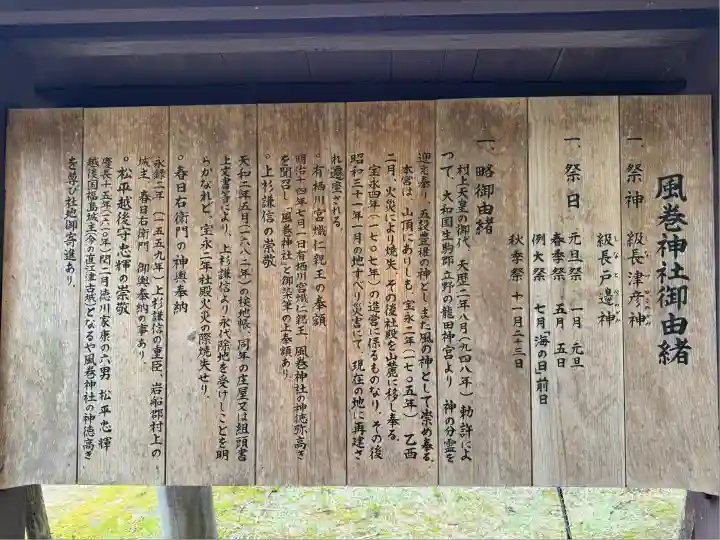 風巻神社御由緒
一、祭神 級長津彦神
級長戸邊神
一、祭日 元旦祭 一月 元旦
春季祭 五月 五日
例大祭 七月「海の日」前日
秋季祭 十一月二十三日
一、略御由緒
村上天皇の御代、天暦二年八月(九四八年)勅許によ
つて、大和国生駒郡立野の龍田神宮より 神の分霊を
迎え奉り、五穀豊穣の神とし、また風の神として崇め奉る。
本宮は、山頂にありしも、宝永二年(一七〇五年)乙酉
二月、火災により焼失、その後社殿を山麓に移し奉る。
宝永四年(一七〇七年)の造営に係るものなり、その後
昭和三十一年一月の地すべり災害にて、現在の地に再建さ
れ遷座される。
○有栖川宮熾仁親王の奉額
明治十四年七月一日有栖川宮熾仁親王、風巻神社の神徳弥高き
を聞召し「風巻神社」と御染筆の上奉額あり。
○上杉謙信の崇敬
天和二年五月(一六八二年)の検地帳、同年の庄屋又は組頭書
上文書等により、上杉謙信より永代除地を受けしことを明
らかなれど、宝永二年社殿火災の際焼失せり。
○春日右衛門の神輿奉納
永禄二年(一五五九年)上杉謙信の重臣、岩船郡村上の
城主、春日右衛門 御輿奉納の事あり。
○松平越後守忠輝の崇敬
慶長十五年(一六一〇年)閏二月徳川家康の六男 松平忠輝
越後国福島城主(今の直江津古城)となるや風巻神社の神徳高き
を尊び社地御寄進あり。